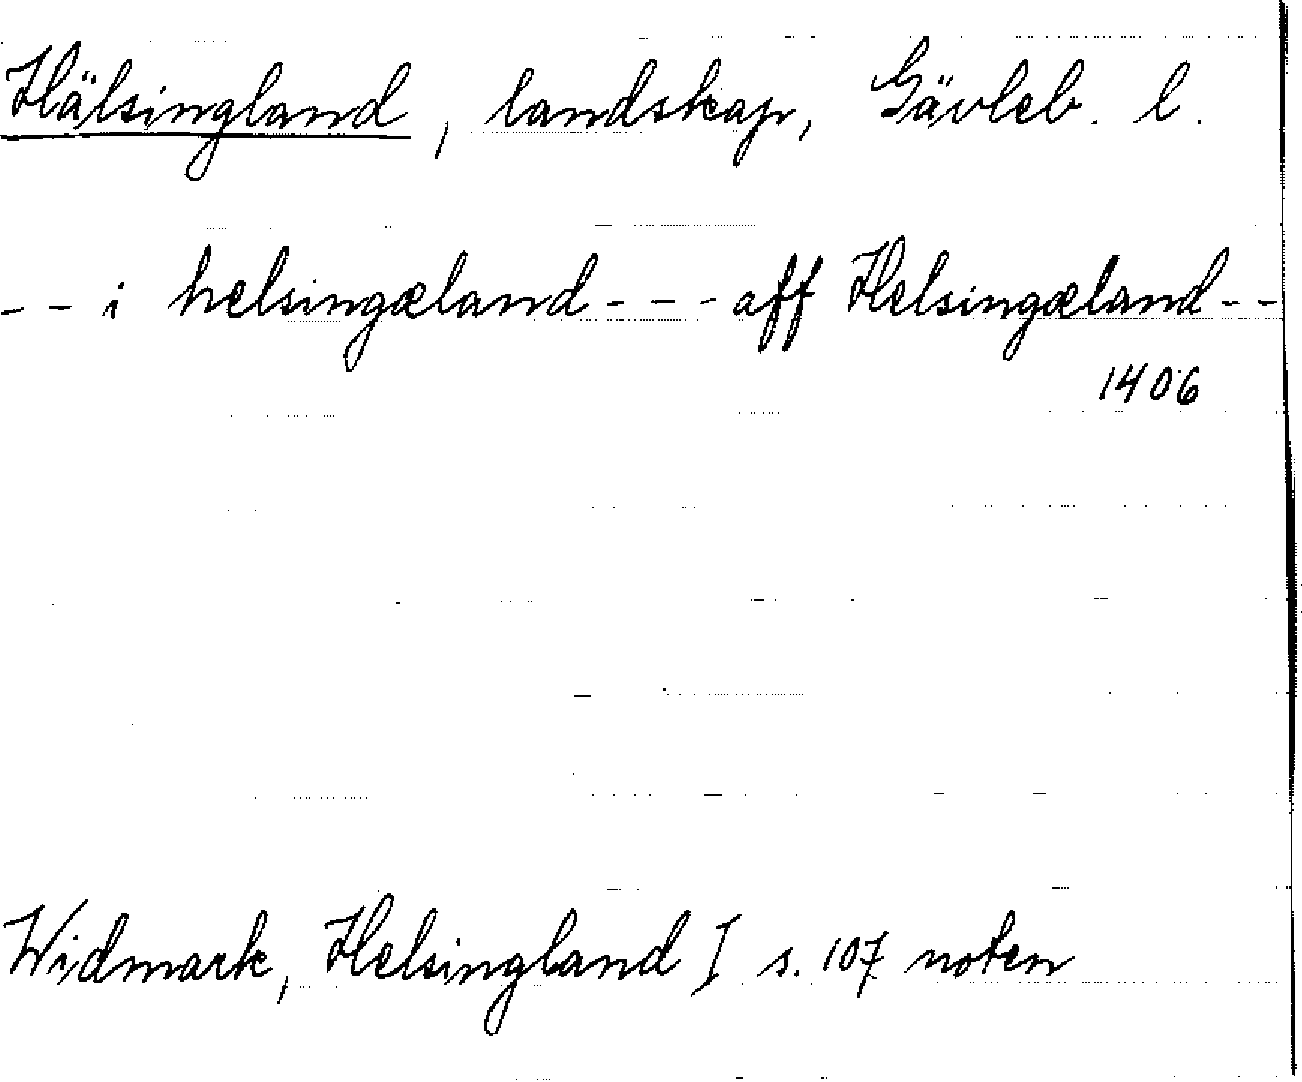 Hälsingland, landskap, Gävleb. l.
- - i helsingæland - - - aff Helsingæland - -
1406
Widmark, Helsingland I s. 107 noten